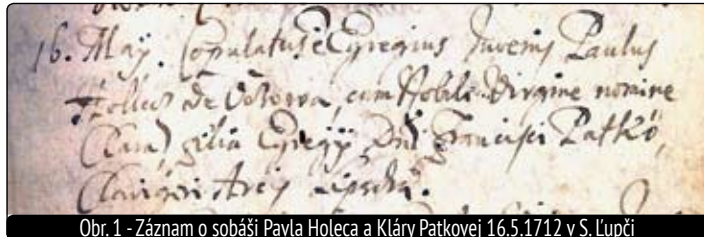 16. Maÿ. Copulatus e Egregius Juvenis Paulus
Hollecz de cum Nobili Virgine nomine
Clara, filia Egregÿ Dnĩ Francisci Patkó,
Arcis Lipscha.
Obr. 1 - Záznam o sobáši Pavla Holeca a Kláry Patkovej 16.5.1712 v S. Ľupči